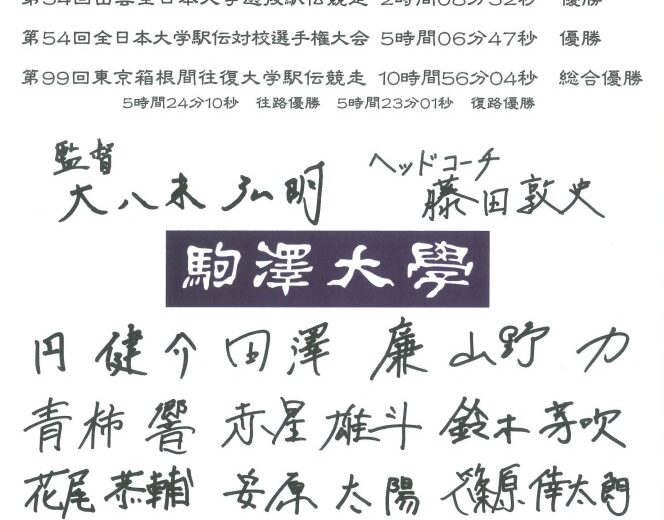 第34回出雲全日本大学選抜駅伝競走 2時間08分32秒 優勝
第54回全日本大学駅伝対校選手権大会 5時間06分47秒 優勝
第99回東京箱根間往復大学駅伝競走 10時間56分04秒 総合優勝
5時間24分10秒 往路優勝 5時間23分01秒 復路優勝
監督 ヘッドコーチ
大八木弘明 藤田敦史
駒澤大學
円健介 田澤廉 山野力
青柿響 赤星雄斗 鈴木芽吹
花尾恭輔 安原太陽 篠原倖太朗